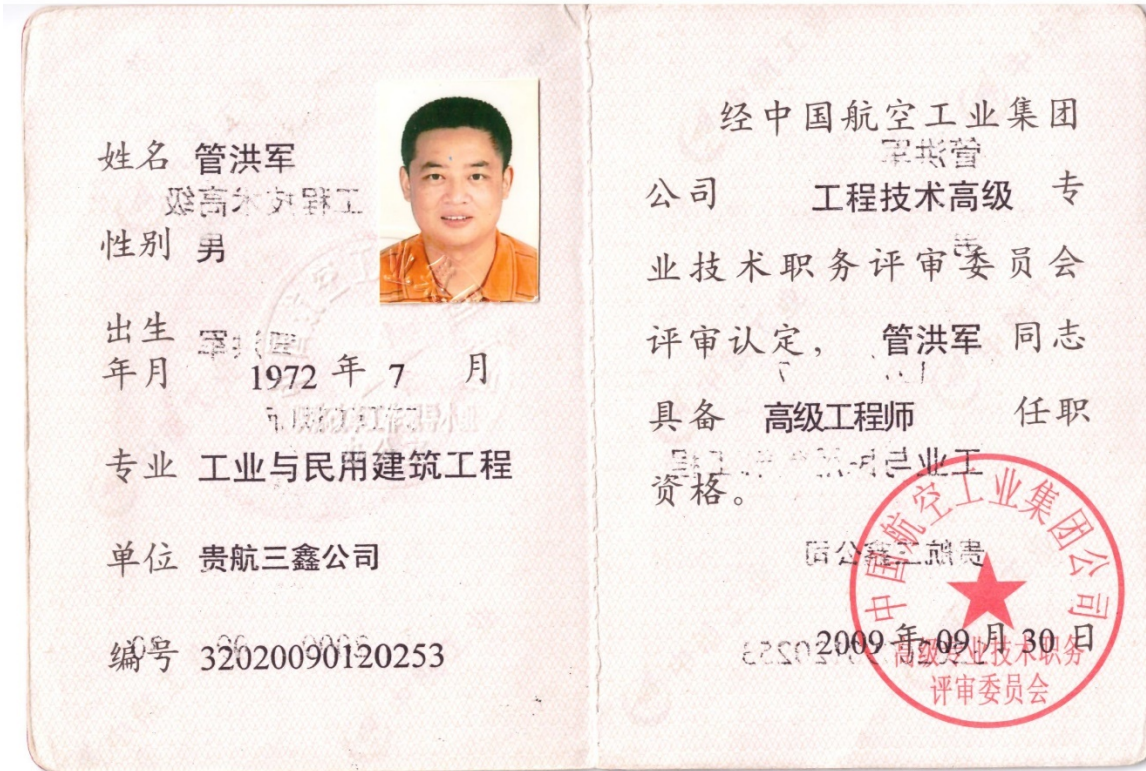 姓名 管洪军
性别 男
出生
年月 1972 年 7 月
专业 工业与民用建筑工程
单位 贵航三鑫公司
编号 32020090120253
经中国航空工业集团
公司 工程技术高级 专
业技术职务评审委员会
评审认定, 管洪军 同志
具备 高级工程师 任职
资格。
2009 年 09 月 30 日
中国航空工业集团公司
高级专业技术职务
评审委员会